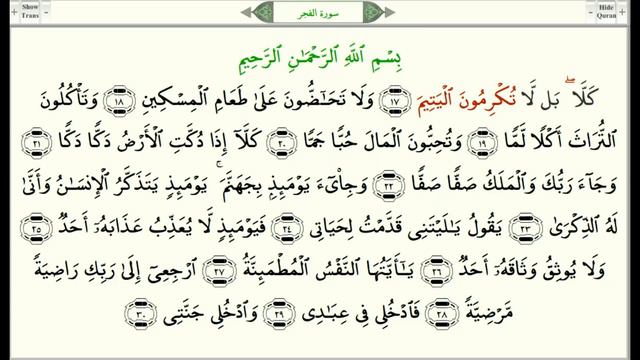 Show Trans
سورة الفجر
Hide Quran
بِسْمِ اللَّهِ الرَّحْمَـٰنِ الرَّحِيمِ
كَلَّا ۖ بَل لَّا تُكْرِمُونَ الْيَتِيمَ ﴿١٧﴾ وَلَا تَحَاضُّونَ عَلَىٰ طَعَامِ الْمِسْكِينِ ﴿١٨﴾ وَتَأْكُلُونَ
التُّرَاثَ أَكْلًا لَّمًّا ﴿١٩﴾ وَتُحِبُّونَ الْمَالَ حُبًّا جَمًّا ﴿٢٠﴾ كَلَّا إِذَا دُكَّتِ الْأَرْضُ دَكًّا دَكًّا ﴿٢١﴾
وَجَاءَ رَبُّكَ وَالْمَلَكُ صَفًّا صَفًّا ﴿٢٢﴾ وَجِايءَ يَوْمَئِذٍ بِجَهَنَّمَ ۚ يَوْمَئِذٍ يَتَذَكَّرُ الْإِنسَانُ وَأَنَّىٰ
لَهُ الذِّكْرَىٰ ﴿٢٣﴾ يَقُولُ يَـٰلَيْتَنِى قَدَّمْتُ لِحَيَاتِى ﴿٢٤﴾ فَيَوْمَئِذٍ لَّا يُعَذِّبُ عَذَابَهُۥٓ أَحَدٌ ﴿٢٥﴾
وَلَا يُوثِقُ وَثَاقَهُۥٓ أَحَدٌ ﴿٢٦﴾ يَـٰٓأَيَّتُهَا النَّفْسُ الْمُطْمَئِنَّةُ ﴿٢٧﴾ ارْجِعِىٓ إِلَىٰ رَبِّكِ رَاضِيَةً
مَّرْضِيَّةً ﴿٢٨﴾ فَادْخُلِى فِى عِبَادِى ﴿٢٩﴾ وَادْخُلِى جَنَّتِى ﴿٣٠﴾